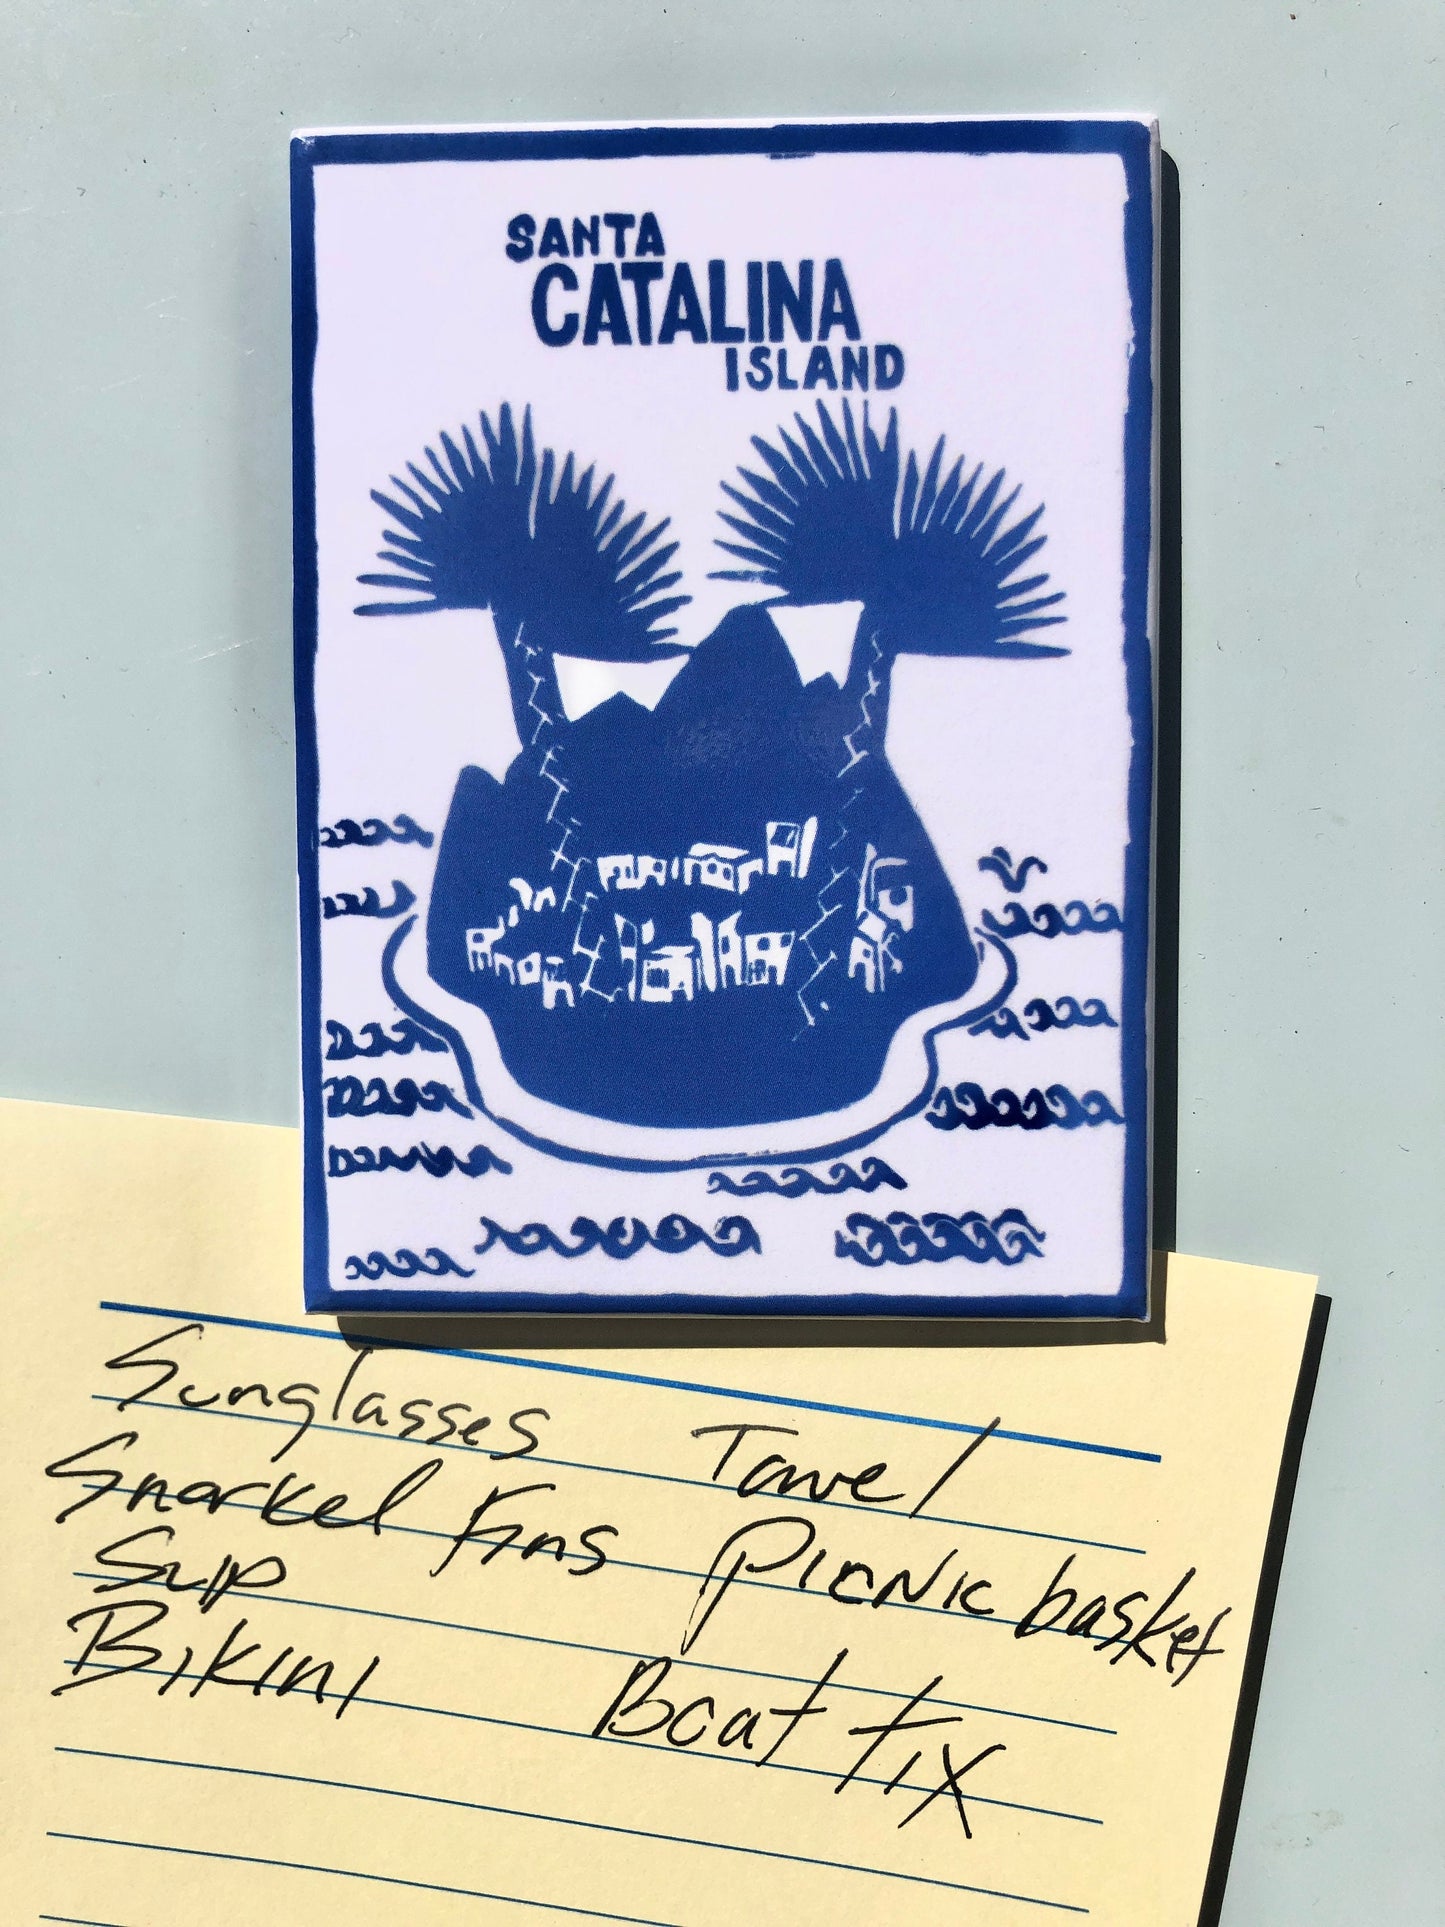 SANTA
CATALINA
ISLAND
Sunglasses Towel
Snorkel Fins Picnic basket
Sup
Bikini Boat tix